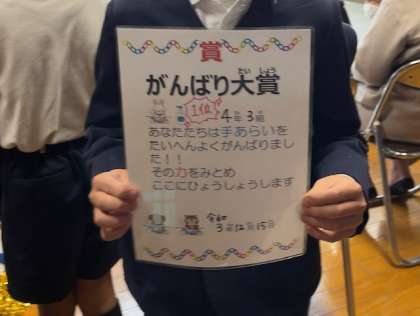 賞
がんばり大賞
たい しょう
1位
4年3組
あなたたちは手あらいを
たいへんよくがんばりまし
た！！
その力をみとめ
ここにひょうしょうします
令和
3年12月15日